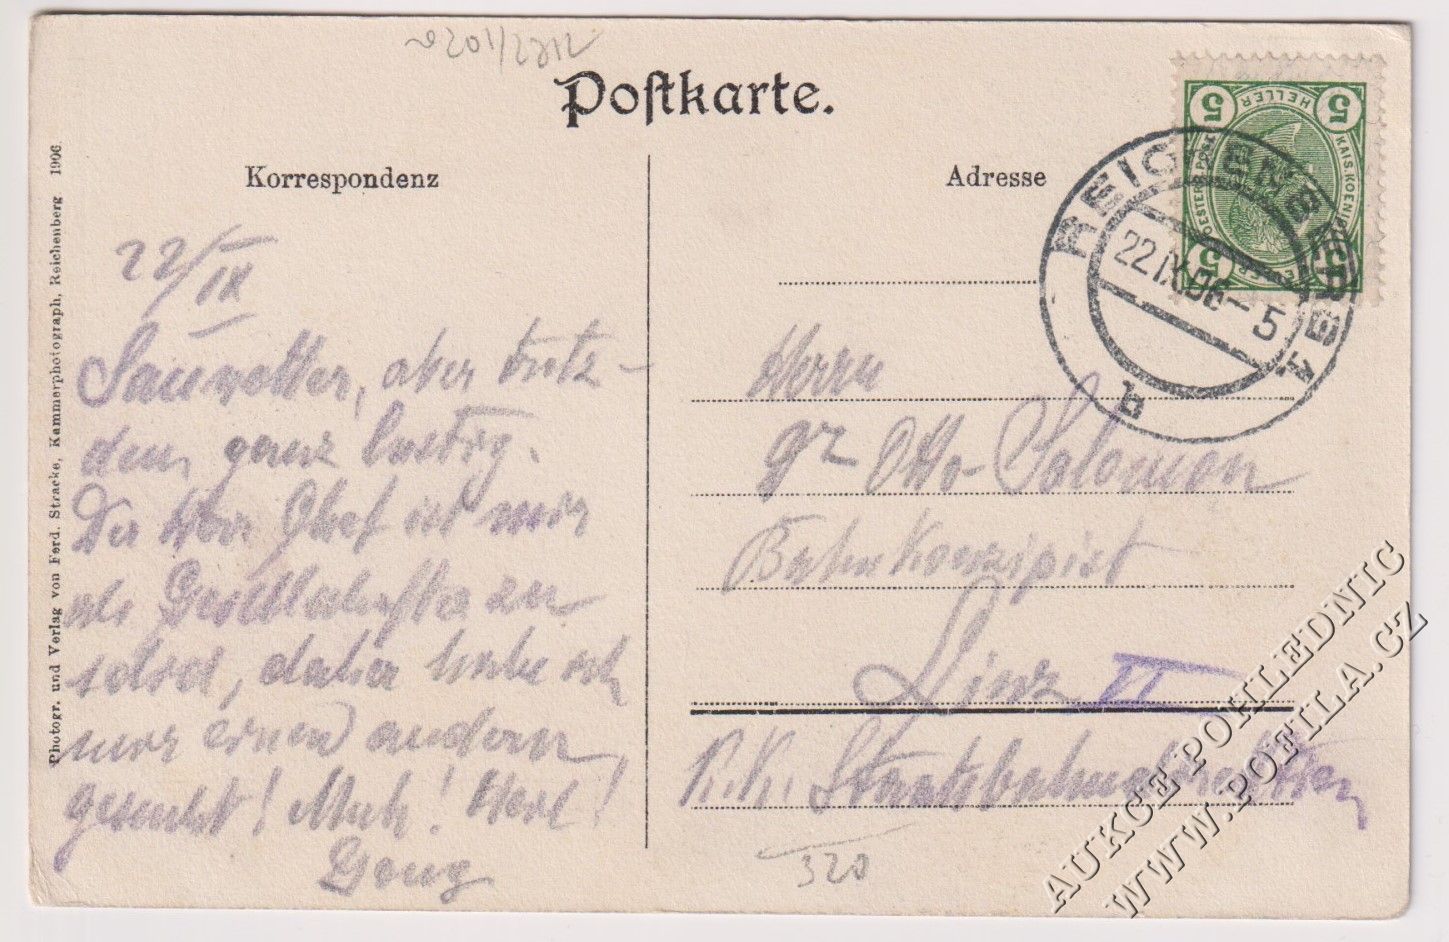 Postkarte.
Korrespondenz
Adresse
Photogr. und Verlag von Ferd. Stracke, Kammerphotograph, Reichenberg 1906
5 HELLER 5
KAIS. KOENIGL. OESTERR. POST
5 HELLER 5
REICHENBERG 1
22 IX 06 - 5
b
22/IX
Sauwetter, aber trotz-
dem ganz lustig.
Der Herr Chef ist mir
als Gesellschafter zu
, daher habe ich
mir einen andern
gesucht! Muh!
Herrn
Otto Salomon
Bahnkonzipist
Linz II
K. K. Staatsbahndirektion
320
AUKCE POHLEDNIC
WWW.POFILA.CZ